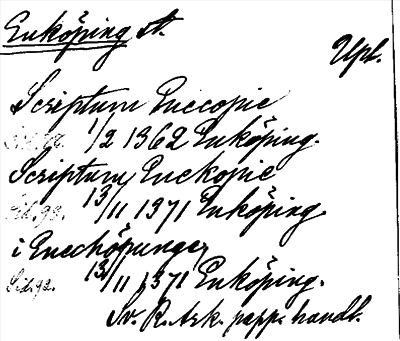 Enköping st.
Upl.
Scriptum Enccopie
1/2 1362 Enköping.
Scriptum Enekopie
Sid. 93. 13/11 1371 Enköping.
i Enechöpunger
Sid. 92. 13/11 1371 Enköping.
Sv. R. Ark. papp. handl.